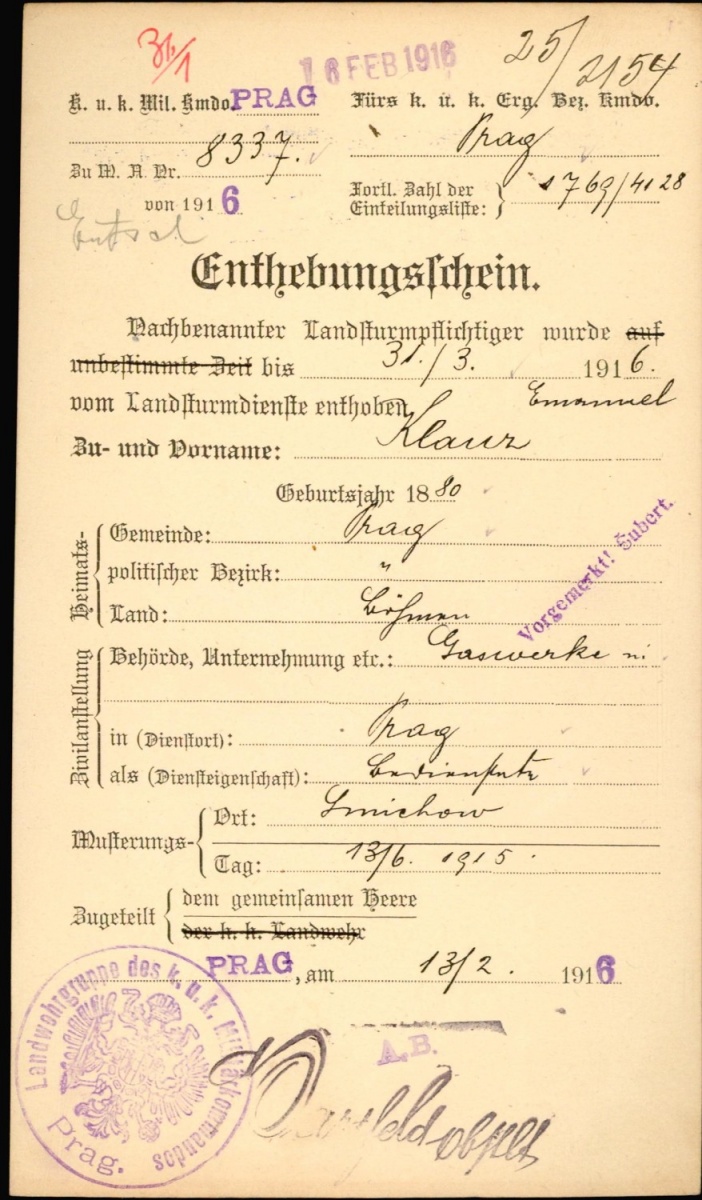 31/1
16 FEB 1916
25/2154
K. u. k. Mil. Kmdo. PRAG
Fürs k. u. k. Erg. Bez. Kmdo.
Prag
Zu M. A. Nr. 8337.
von 1916
Fortl. Zahl der
Einteilungsliste: 1769/4128
Enthebungsschein.
Nachbenannter Landsturmpflichtiger wurde auf
unbestimmte Zeit bis 31./3. 1916.
vom Landsturmdienste enthoben
Zu- und Vorname: Klauz Emanuel
Geburtsjahr 1880
Heimats-
Gemeinde: Prag
politischer Bezirk: "
Land: Böhmen
Vorgemerkt! Šubert.
Zivilanstellung
Behörde, Unternehmung etc.: Gaswerke
in (Dienstort): Prag
als (Diensteigenschaft): Bediensteter
Musterungs-
Ort: Smichow
Tag: 13/6. 1915.
Zugeteilt
dem gemeinsamen Heere
der k. k. Landwehr
PRAG, am 13/2. 1916
A.B.
Landwehrgruppe des k. u. k. Militärkommandos
Prag.